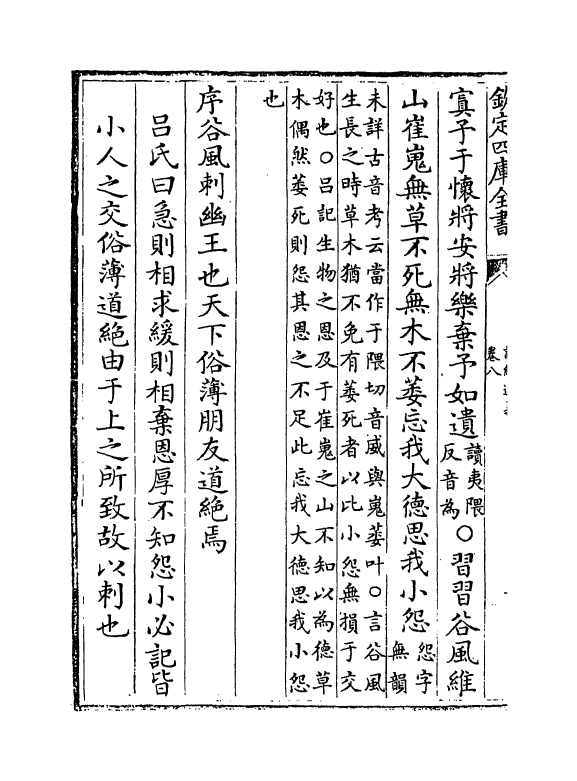 欽定四庫全書
卷八
寘予于懷將安將樂棄予如遺讀夷隈反音為○習習谷風維
山崔嵬無草不死無木不萎忘我大德思我小怨怨字無韻
未詳古音考云當作于隈切音威與嵬萎叶○言谷風
生長之時草木猶不免有萎死者以比小怨無損于交
好也○呂記生物之恩及于崔嵬之山不知以為德草
木偶然萎死則怨其恩之不足此忘我大德思我小怨
也
序谷風刺幽王也天下俗薄朋友道絶焉
呂氏曰急則相求緩則相棄恩厚不知怨小必記皆
小人之交俗薄道絶由于上之所致故以刺也